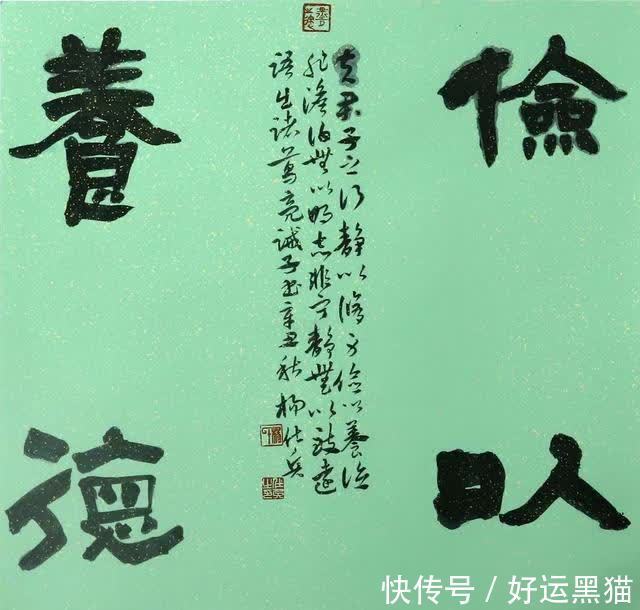 儉以
夫君子之行靜以脩身儉以養德
非澹泊無以明志非寧靜無以致遠
語出諸葛亮誡子書辛丑秋楊仕兵
養德
快传号 / 好运黑猫